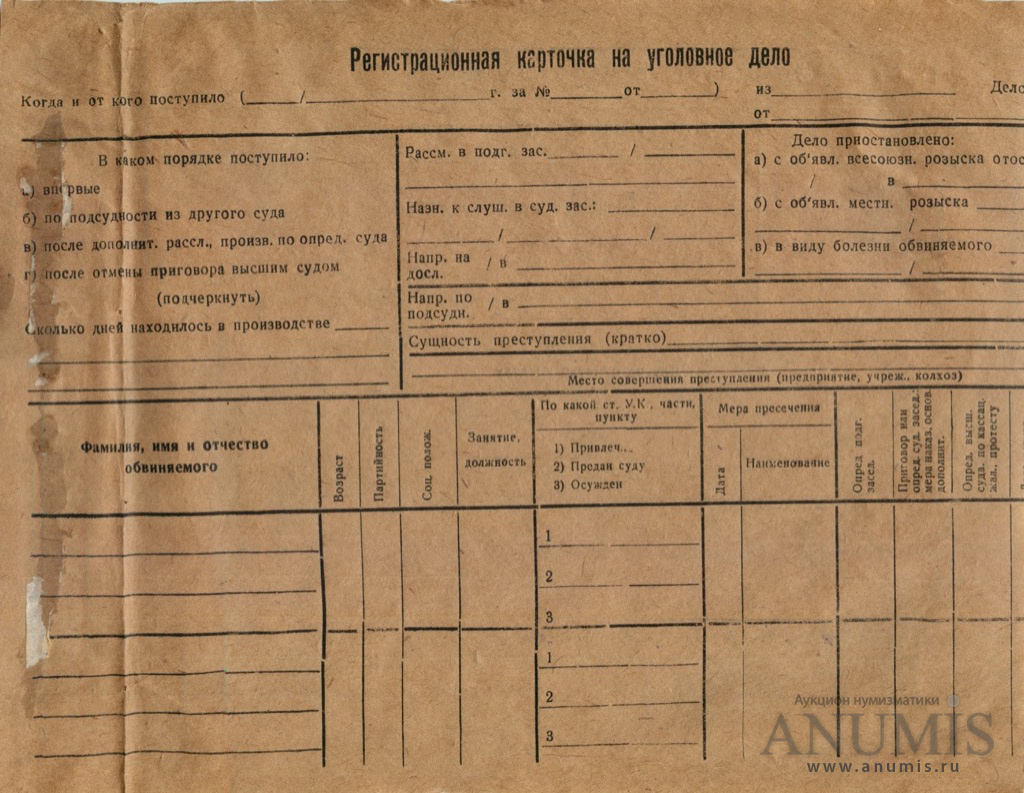 Регистрационная карточка на уголовное дело
Когда и от кого поступило (____/____________ г. за № ______ от ______) из ____________ Дело
от ____________
В каком порядке поступило:
а) впервые
б) по подсудности из другого суда
в) после дополнит. рассл., произв. по опред. суда
г) после отмены приговора высшим судом
(подчеркнуть)
Сколько дней находилось в производстве ____
Рассм. в подг. зас. ______ / ______
Назн. к слуш. в суд. зас.: ______
______ / ____________ / ______
Напр. на / в ____________
досл.
Дело приостановлено:
а) с об'явл. всесоюзн. розыска
/ в ____________
б) с об'явл. местн. розыска ____
____________ / ______
в) в виду болезни обвиняемого ____
____________ / ______
Напр. по / в ____________
подсудн.
Сущность преступления (кратко) ____________
Место совершения преступления (предприятие, учреж., колхоз)
Фамилия, имя и отчество
обвиняемого
Возраст
Партийность
Соц. полож.
Занятие,
должность
По какой ст. У.К., части,
пункту
1) Привлеч...
2) Предан суду
3) Осужден
Мера пресечения
Дата
Наименование
Опред подг.
засед.
Приговор или
опред. суд. засед.:
мера наказ. основ.
дополнит.
Опред. высш.
суда. по кассац.
жал., протесту
1
2
3
1
2
3
Аукцион нумизматики
ANUMIS
www.anumis.ru